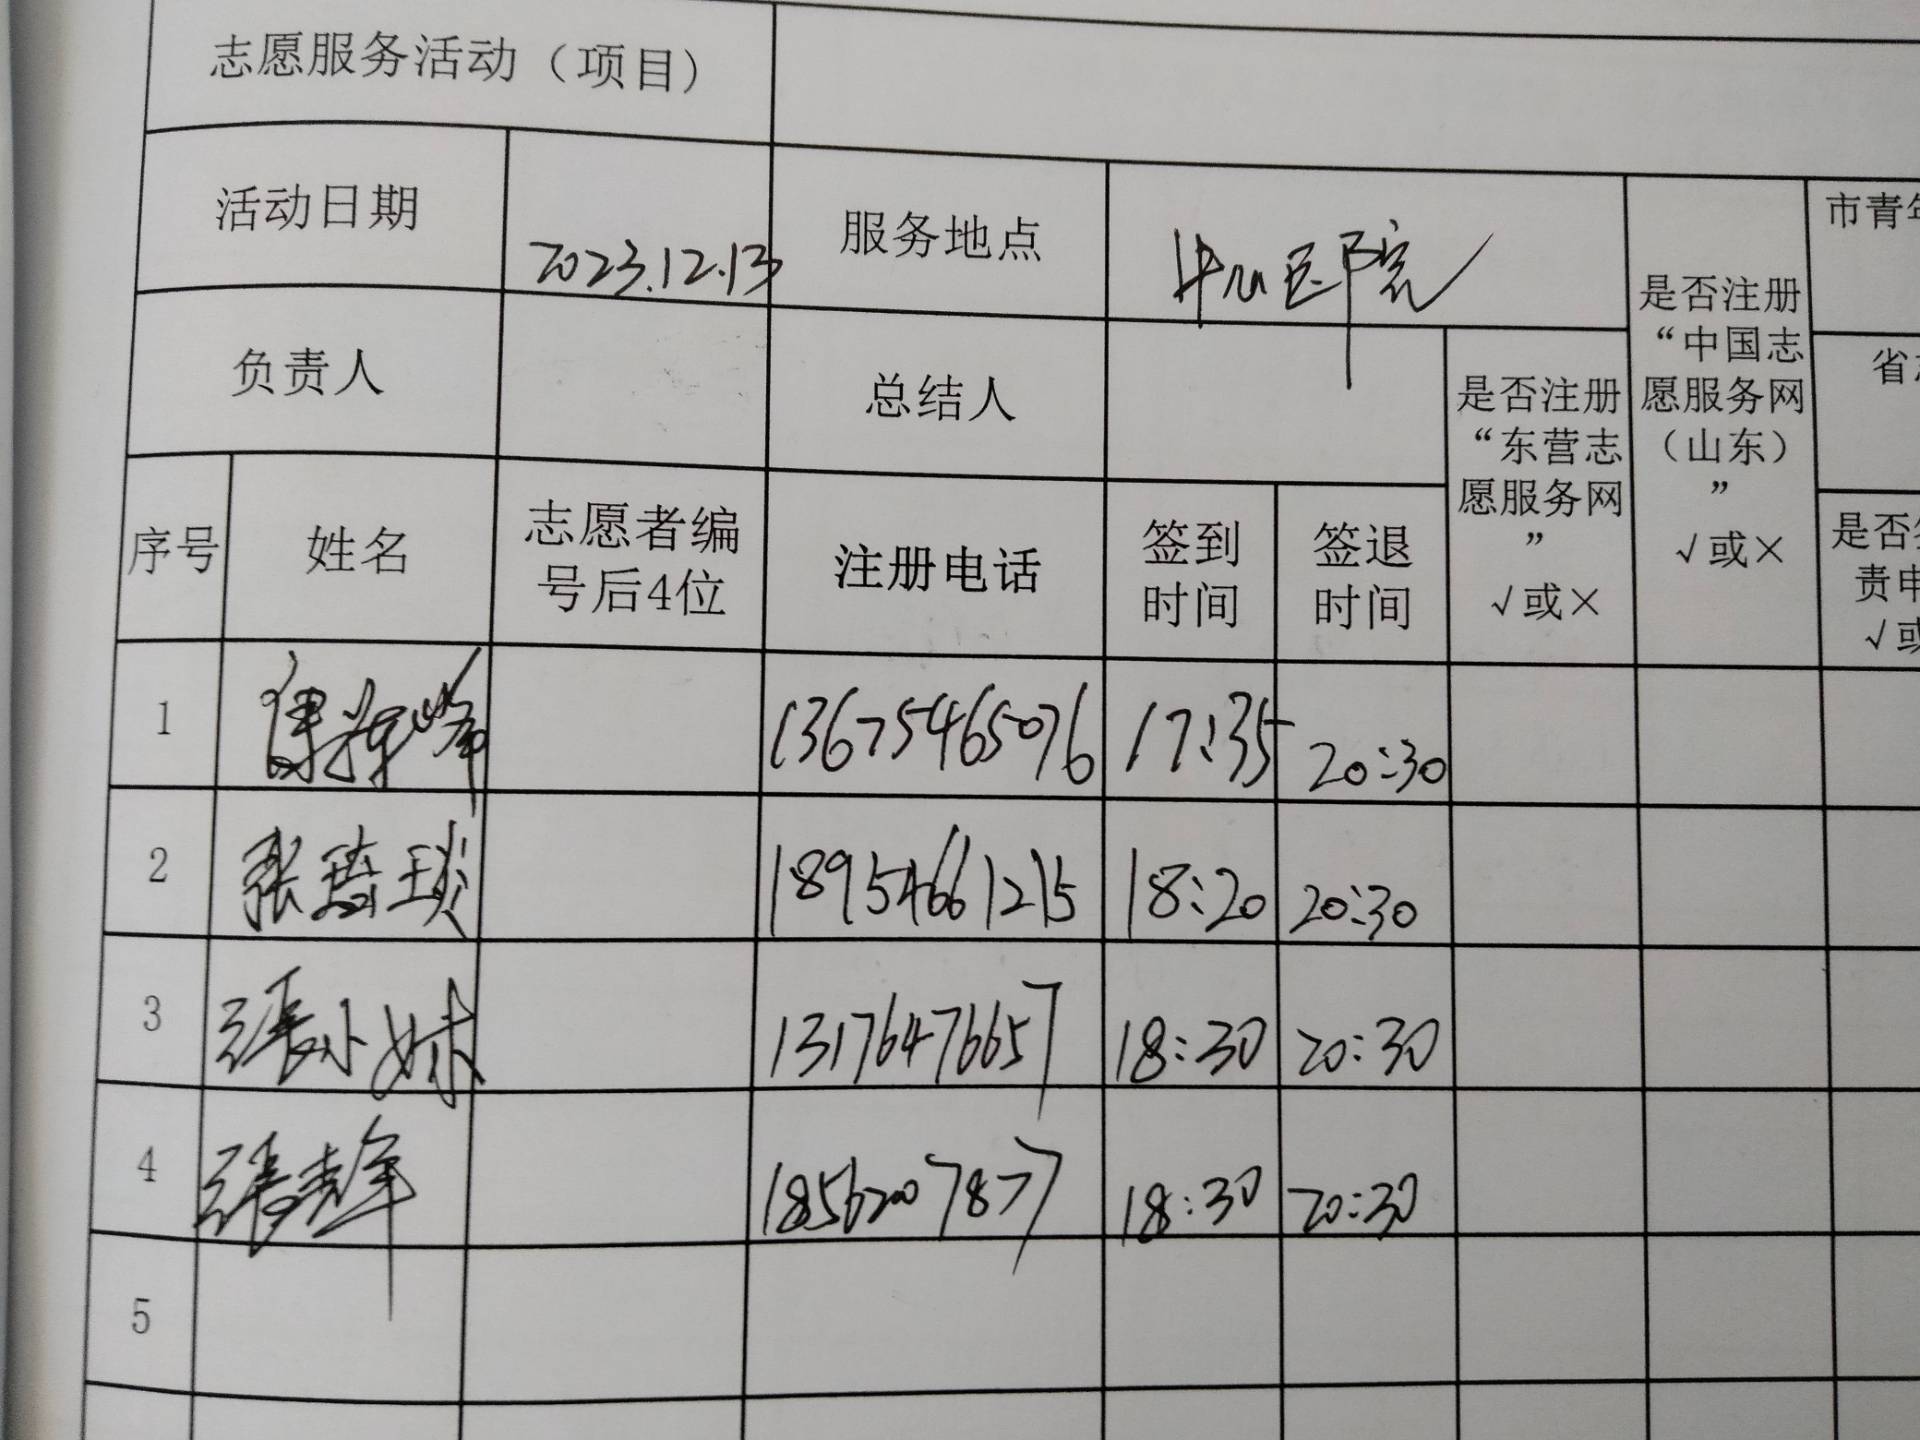 志愿服务活动（项目）
活动日期
2023.12.13
服务地点
中心医院
是否注册
“中国志
愿服务网
（山东）
”
√或×
市青年
负责人
总结人
是否注册
“东营志
愿服务网
”
√或×
省
序号
姓名
志愿者编
号后4位
注册电话
签到
时间
签退
时间
是否
责申
√或
1
13675465076
17:35
20:30
2
18954661215
18:20
20:30
3
张小妹
13176476657
18:30
20:30
4
18562007877
18:30
20:30
5